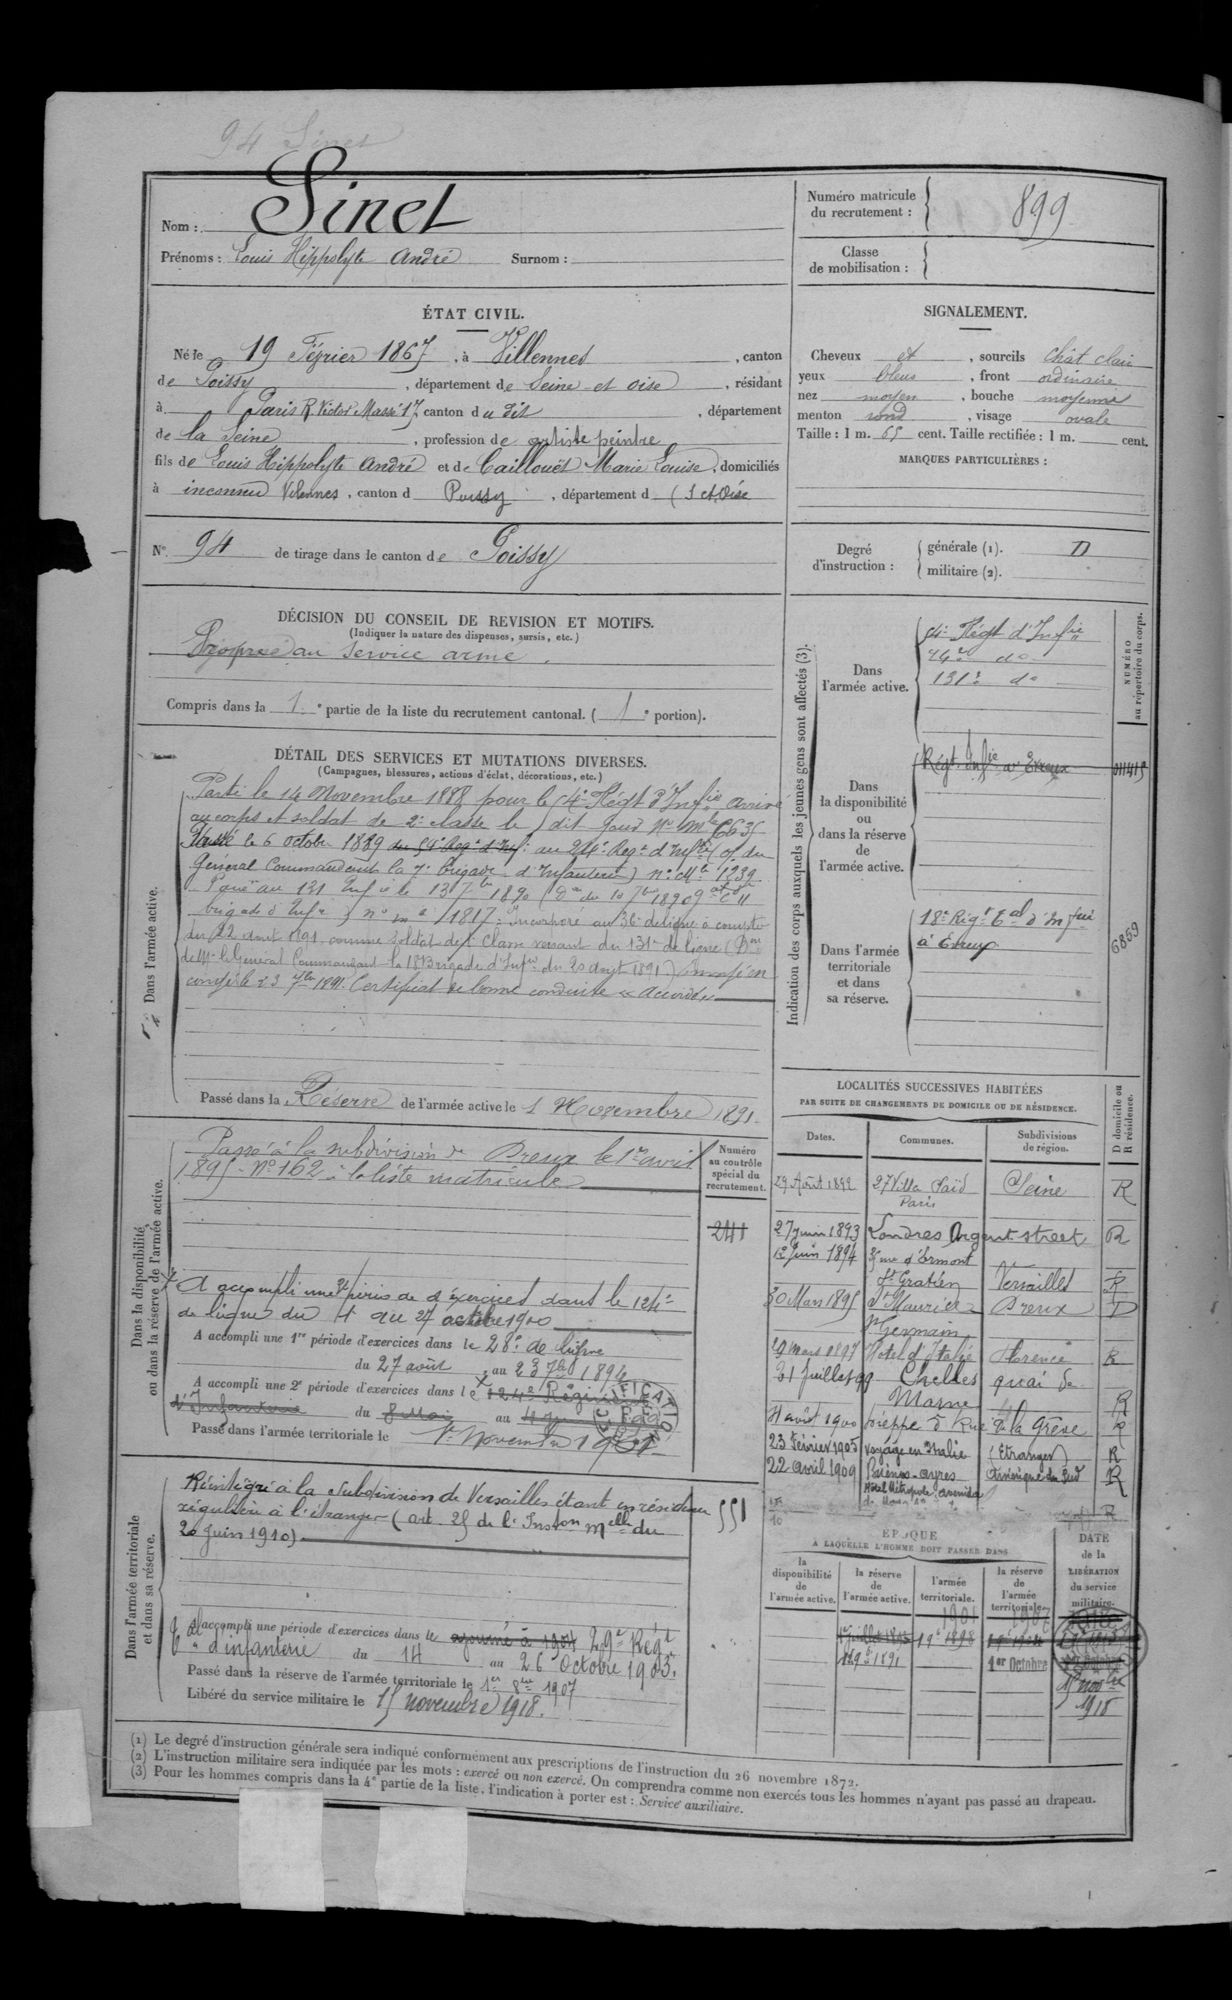 94 Sinet
Nom : Sinet
Prénoms : Louis Hippolyte André Surnom :
Numéro matricule du recrutement : 899
Classe de mobilisation :
ÉTAT CIVIL.
Né le 19 Février 1867, à Villennes, canton
de Poissy, département de Seine et oise, résidant
à Paris R. Victor Massé 17, canton du dit, département
de la Seine, profession de artiste peintre
fils de Louis Hippolyte André et de Caillouët Marie Louise, domiciliés
à inconnu Villennes, canton d Poissy, département d (S et Oise
SIGNALEMENT.
Cheveux et, sourcils chât clair
yeux bleus, front ordinaire
nez moyen, bouche moyenne
menton rond, visage ovale
Taille : 1 m. 65 cent. Taille rectifiée : 1 m. cent.
MARQUES PARTICULIÈRES :
N° 94 de tirage dans le canton de Poissy
Degré d'instruction :
générale (1). D
militaire (2).
DÉCISION DU CONSEIL DE REVISION ET MOTIFS.
(Indiquer la nature des dispenses, sursis, etc.)
Propre au service armé.
Compris dans la 1e partie de la liste du recrutement cantonal. ( 1e portion).
DÉTAIL DES SERVICES ET MUTATIONS DIVERSES.
(Campagnes, blessures, actions d'éclat, décorations, etc.)
Dans l'armée active.
Parti le 14 Novembre 1888 pour le Régt d'Infie arrivé
au corps et soldat de 2e classe le dit jour N° Mle 6635
Passé le 6 octobre 1889 au 24e Regt d'Infie (of. du
Général Commandant la 7e brigade d'Infanterie) n° Mle 1239
Passé au 131 Infie le 13 7bre 1890
brigade d'Infie) n° mle 1817. Incorporé au 36e de ligne à compter
du 22 aout 1891 comme soldat de classe venant du 131e de ligne (Don
de Mr le Général Commandant la Brigade d'Infie du 20 aout 1891)
congé le 23 7bre 1891. Certificat de bonne conduite « accordé »
Passé dans la Réserve de l'armée active le 1 Novembre 1891
Indication des corps auxquels les jeunes gens sont affectés (3).
NUMÉRO au répertoire du corps.
Dans l'armée active.
Régt d'Infie
24e do
131e do
Dans la disponibilité ou dans la réserve de l'armée active.
Régt Infie d'Evreux
Dans l'armée territoriale et dans sa réserve.
18e Régt Tal d'Infie
à Evreux
6859
LOCALITÉS SUCCESSIVES HABITÉES
PAR SUITE DE CHANGEMENTS DE DOMICILE OU DE RÉSIDENCE.
Dates. Communes. Subdivisions de région. D domicile ou R résidence.
29 Août 1892 27 Villa Saïd Paris Seine R
27 juin 1893 Londres street R
12 Juin 1894 rue d'Ermont St Gratien Versailles R
30 Mars 1895 St Maurice St Germain Dreux D
19 mars 1897 Hotel d'Italie Florence R
31 Juillet 99 Chelles quai de Marne R
31 août 1900 Dieppe 5 Rue de la Grève R
23 Février 1905 voyage en Italie (Etranger) R
22 avril 1909 Buénos-ayres Hôtel Métropole avenida de Amérique du Sud R
Dans la disponibilité ou dans la réserve de l'armée active.
Passé à la subdivision de Dreux le 1er avril
1895 - N° 162 à la liste matricule
Numéro au contrôle spécial du recrutement.
241
A accompli une 2e période d'exercices dans le 124e
de ligne du 4 au 27 octobre 1900
A accompli une 1re période d'exercices dans le 28e de ligne
du 27 août au 23 7bre 1894
A accompli une 2e période d'exercices dans le 124e Régiment
d'Infanterie du 8 Mai au
Passé dans l'armée territoriale le 1er Novembre 1901
Dans l'armée territoriale et dans sa réserve.
Réintégré à la subdivision de Versailles étant en résidence
régulière à l'étranger (art. 25 de l'Inston melle du
20 Juin 1910).
551
A accompli une période d'exercices dans le ajourné à 1904 29e Régt
Tal d'infanterie du 14 au 26 Octobre 1905.
Passé dans la réserve de l'armée territoriale le 1er 8bre 1907
Libéré du service militaire le 15 novembre 1918.
ÉPOQUE
A LAQUELLE L'HOMME DOIT PASSER DANS
la disponibilité de l'armée active.
la réserve de l'armée active.
l'armée territoriale.
la réserve de l'armée territoriale.
DATE de la LIBÉRATION du service militaire.
1901
1907
1er Octobre
15 novbre 1918
(1) Le degré d'instruction générale sera indiqué conformément aux prescriptions de l'instruction du 26 novembre 1872.
(2) L'instruction militaire sera indiquée par les mots : exercé ou non exercé. On comprendra comme non exercés tous les hommes n'ayant pas passé au drapeau.
(3) Pour les hommes compris dans la 4e partie de la liste, l'indication à porter est : Service auxiliaire.